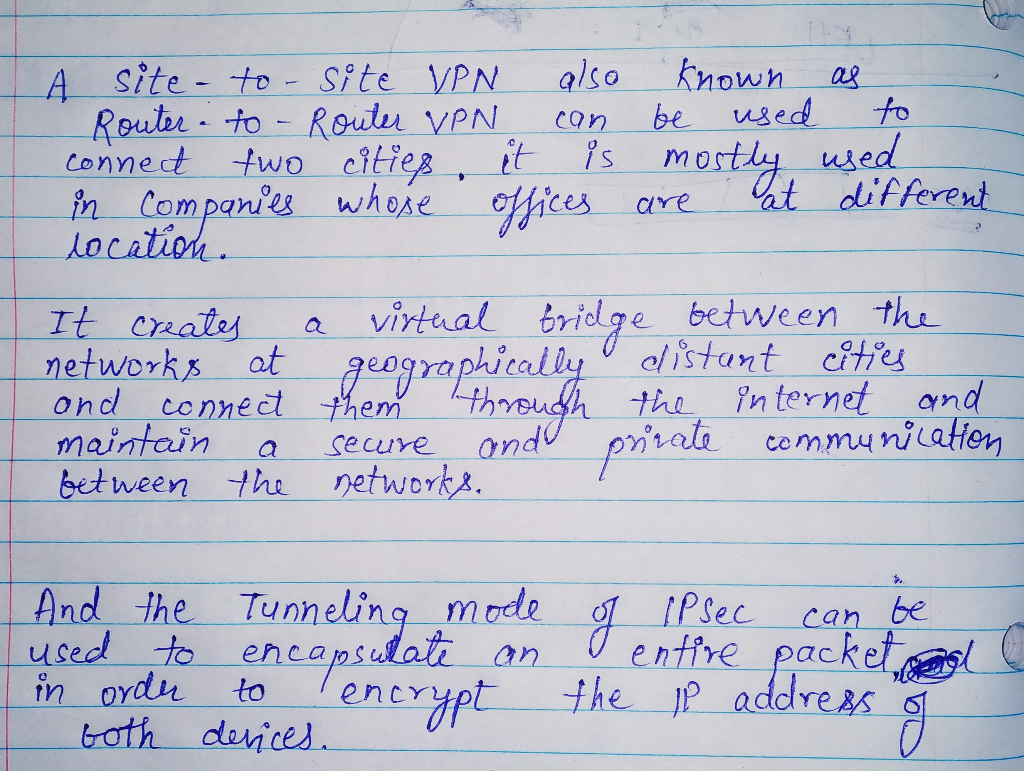 A Site - to - Site VPN also Known as
Router - to - Router VPN can be used to
connect two cities. it is mostly used
in Companies whose offices are at different
location.
It creates a virtual bridge between the
networks at geographically distant cities
and connect them through the internet and
maintain a secure and private communication
between the networks.
And the Tunneling mode of IPsec can be
used to encapsulate an entire packet,
in order to encrypt the IP address of
both devices.